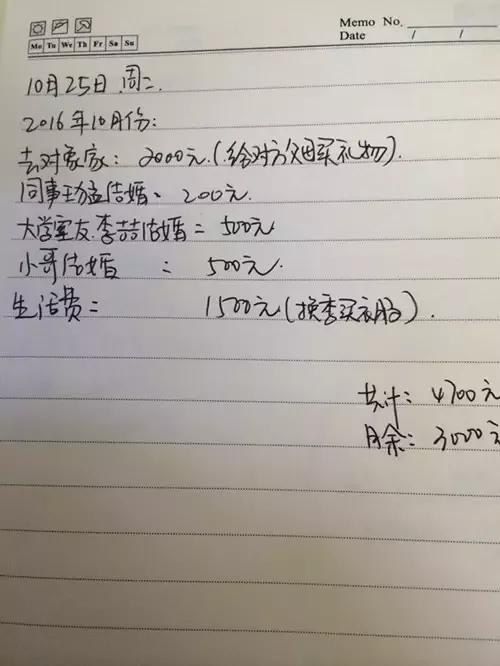 Memo No.
Mo Tu We Th Fr Sa Su
Date / /
10月25日.周二.
2016年10月份:
去对象家: 2000元.(给对方父母买礼物).
同事结婚、200元.
大学室友.李喆结婚= 500元
小哥结婚 : 500元.
生活费= 1500元(换季买衣服).
共计: 4700元
月余: 3000元